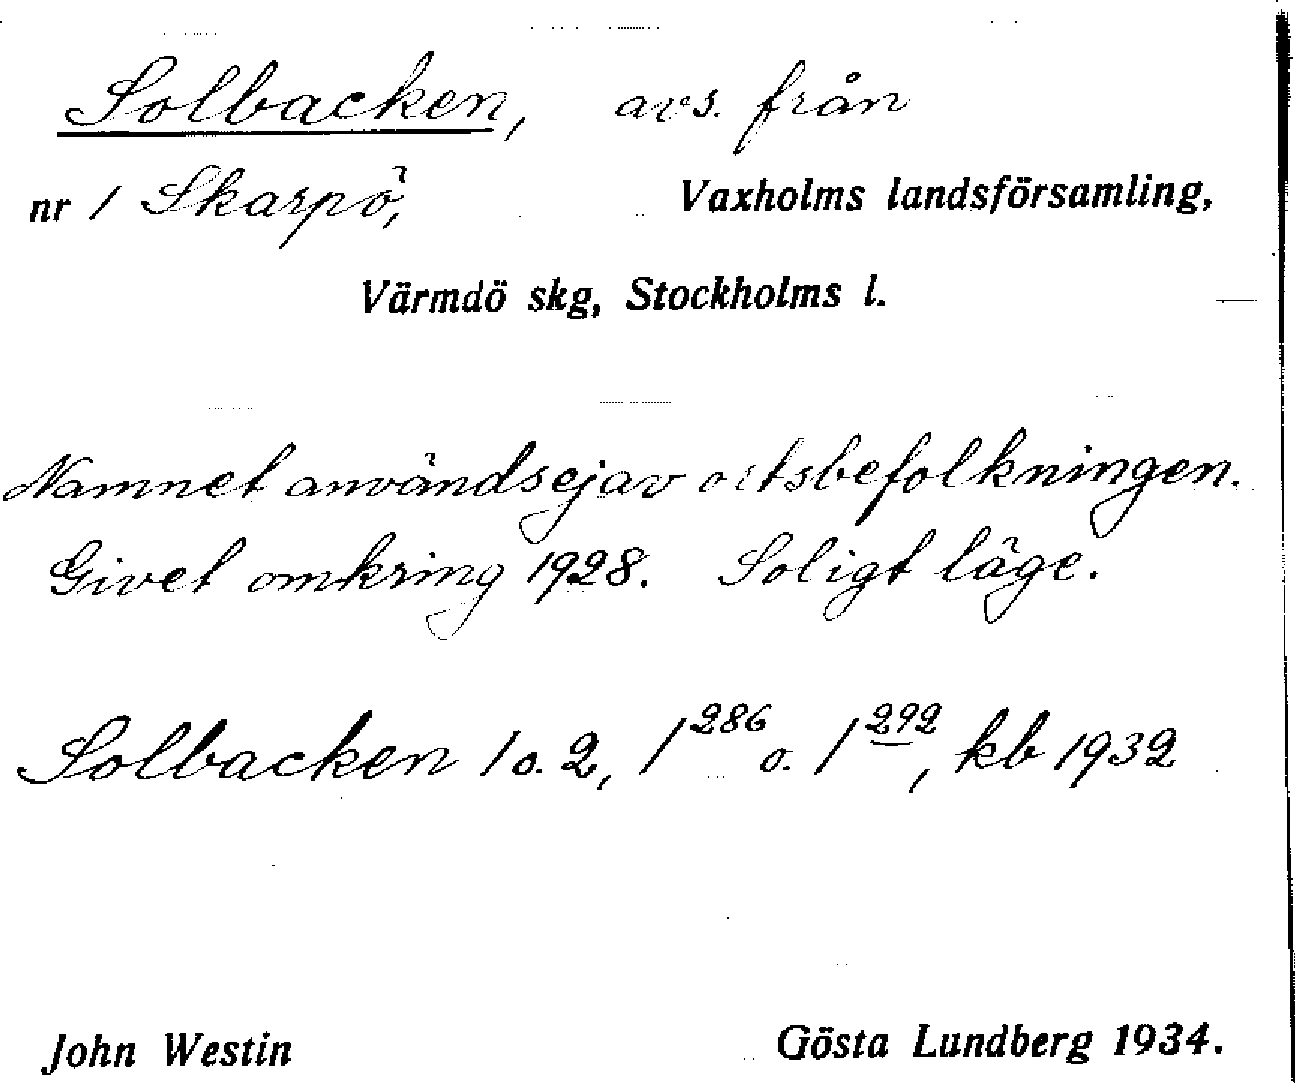 Solbacken, avs. från
nr 1 Skarpö, Vaxholms landsförsamling,
Värmdö skg, Stockholms l.
Namnet användsejav ortsbefolkningen.
Givet omkring 1928. Soligt läge.
Solbacken 1 o. 2, 1²⁸⁶ o. 1²⁹², kb 1932
John Westin Gösta Lundberg 1934.